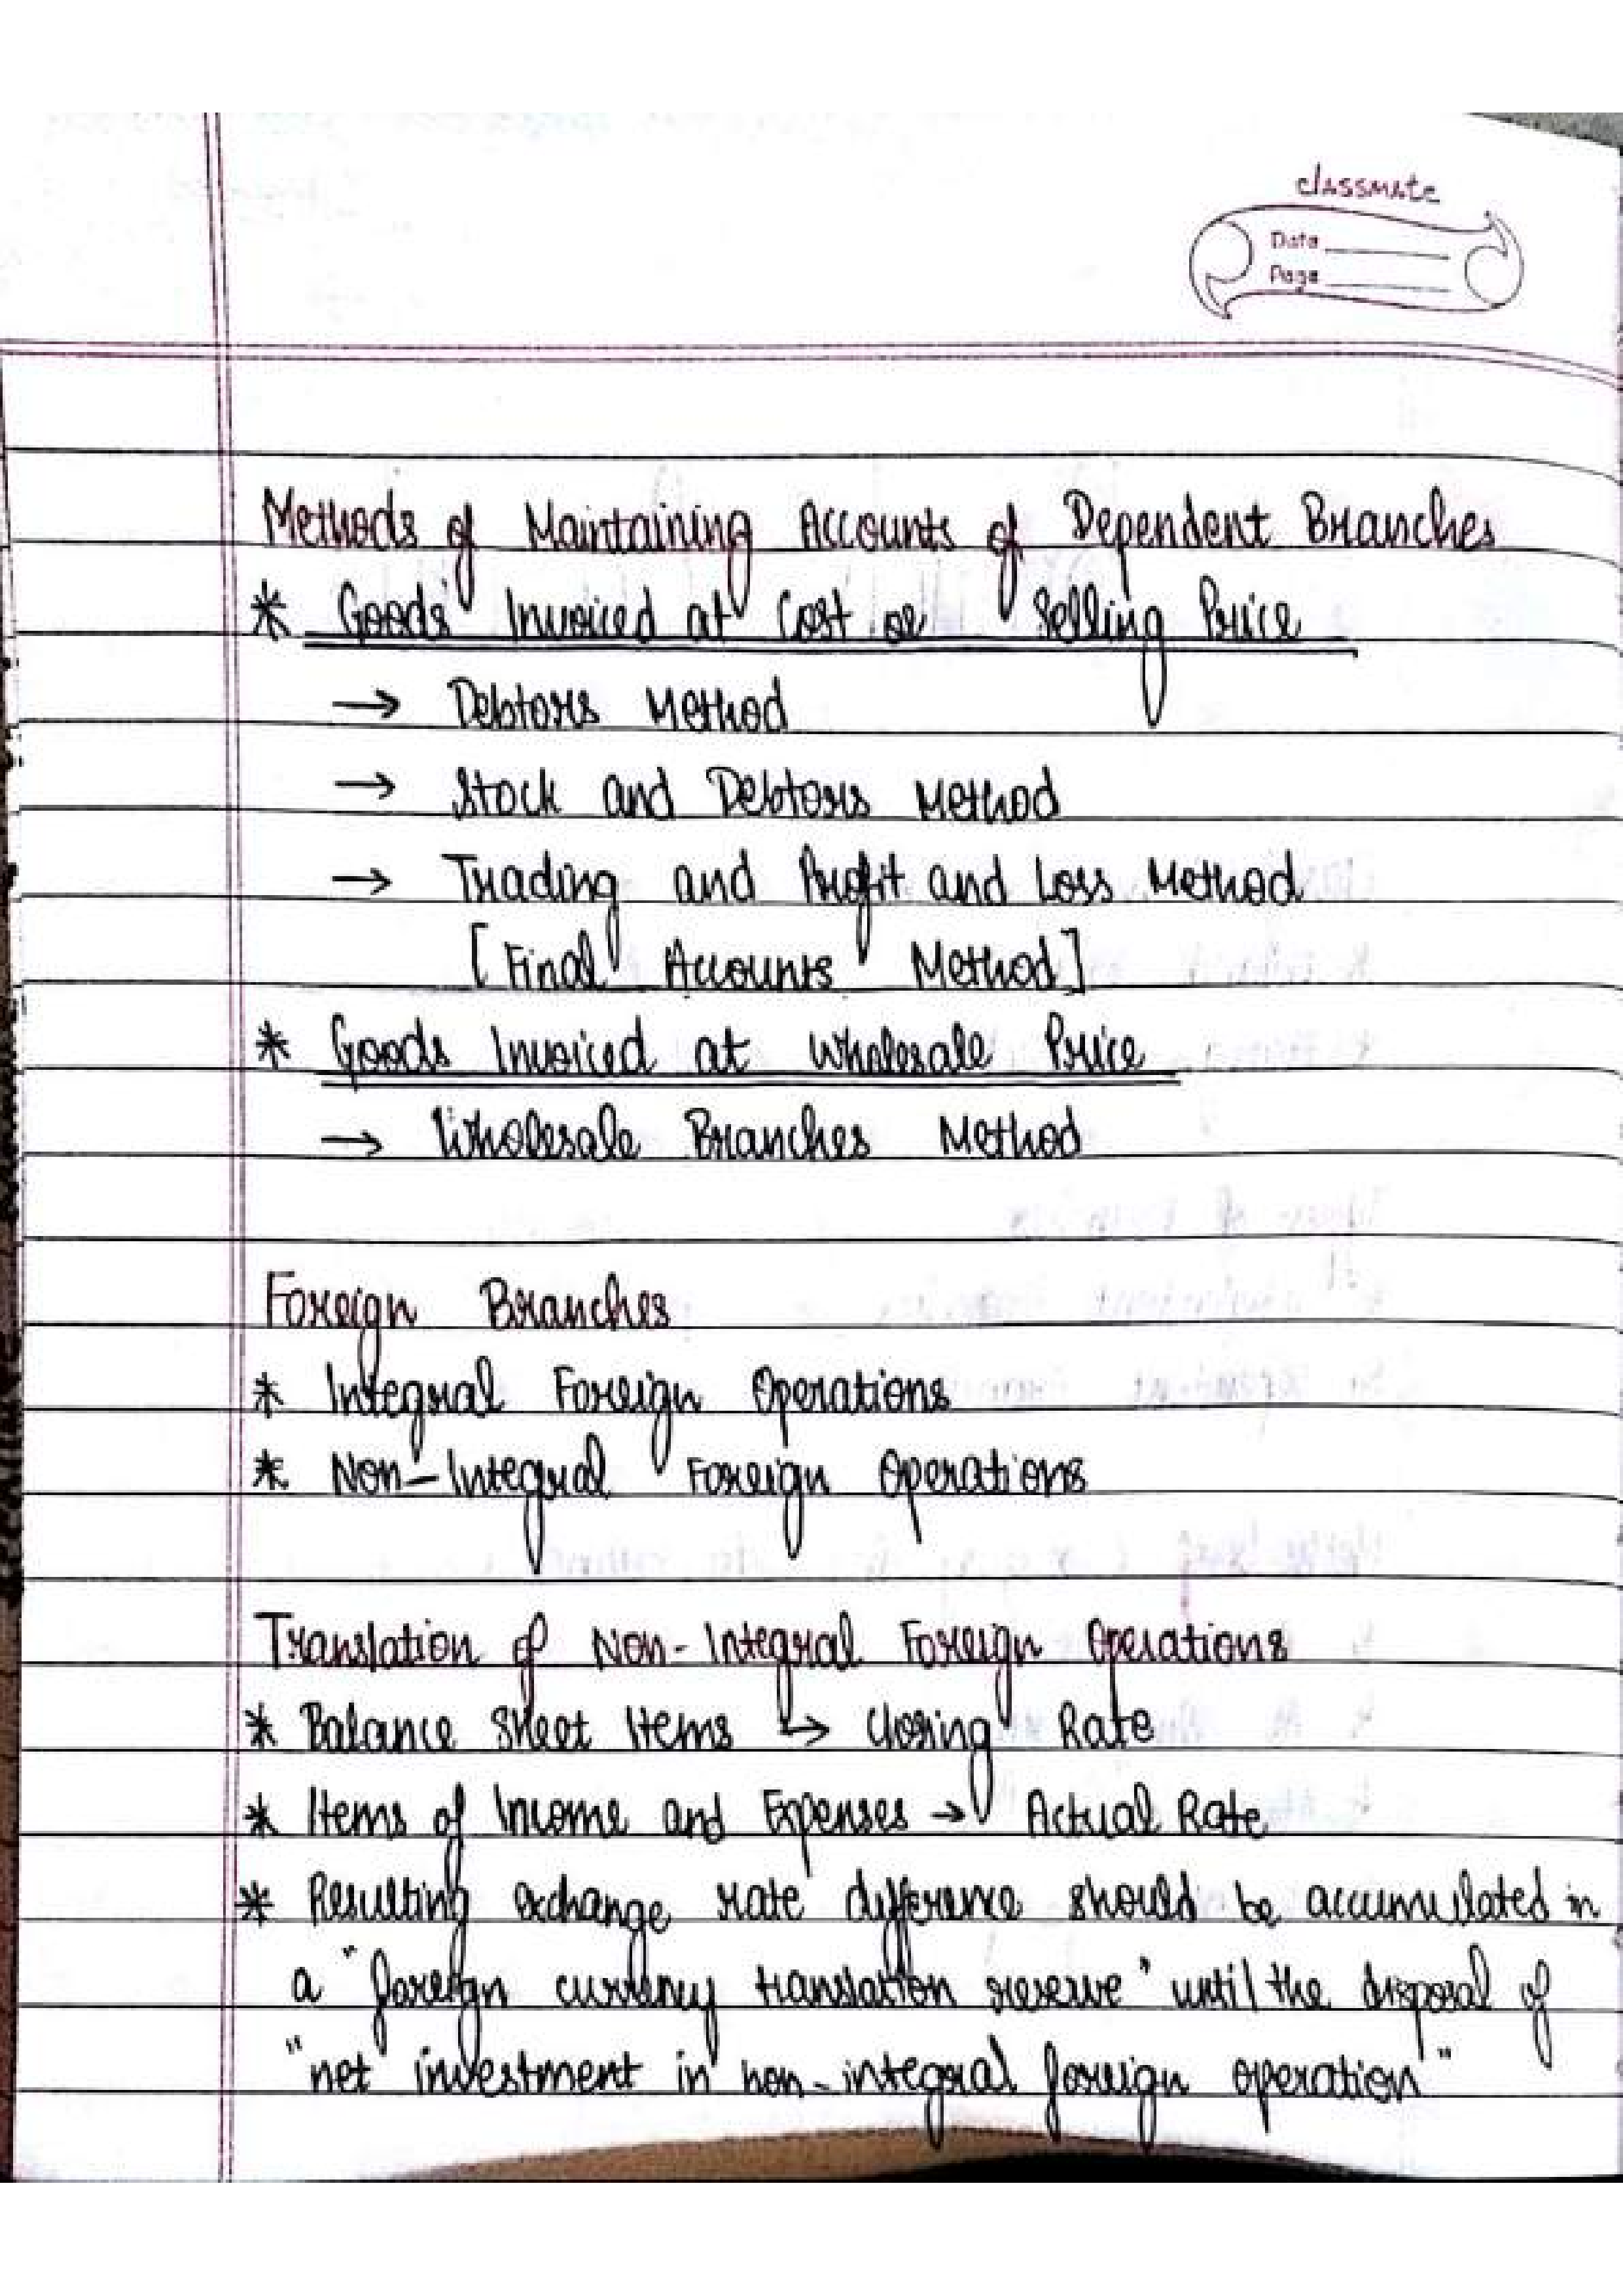 classmate
Date
Page
Methods of Maintaining Accounts of Dependent Branches
* Goods Invoiced at Cost or Selling Price
→ Debtors Method
→ Stock and Debtors Method
→ Trading and Profit and Loss Method
[Final Accounts Method]
* Goods Invoiced at Wholesale Price
→ Wholesale Branches Method
Foreign Branches
* Integral Foreign Operations
* Non-Integral Foreign Operations
Translation of Non-Integral Foreign Operations
* Balance Sheet Items → Closing Rate
* Items of Income and Expenses → Actual Rate
* Resulting exchange rate difference should be accumulated in
a "foreign currency translation reserve" until the disposal of
"net investment in non-integral foreign operation"